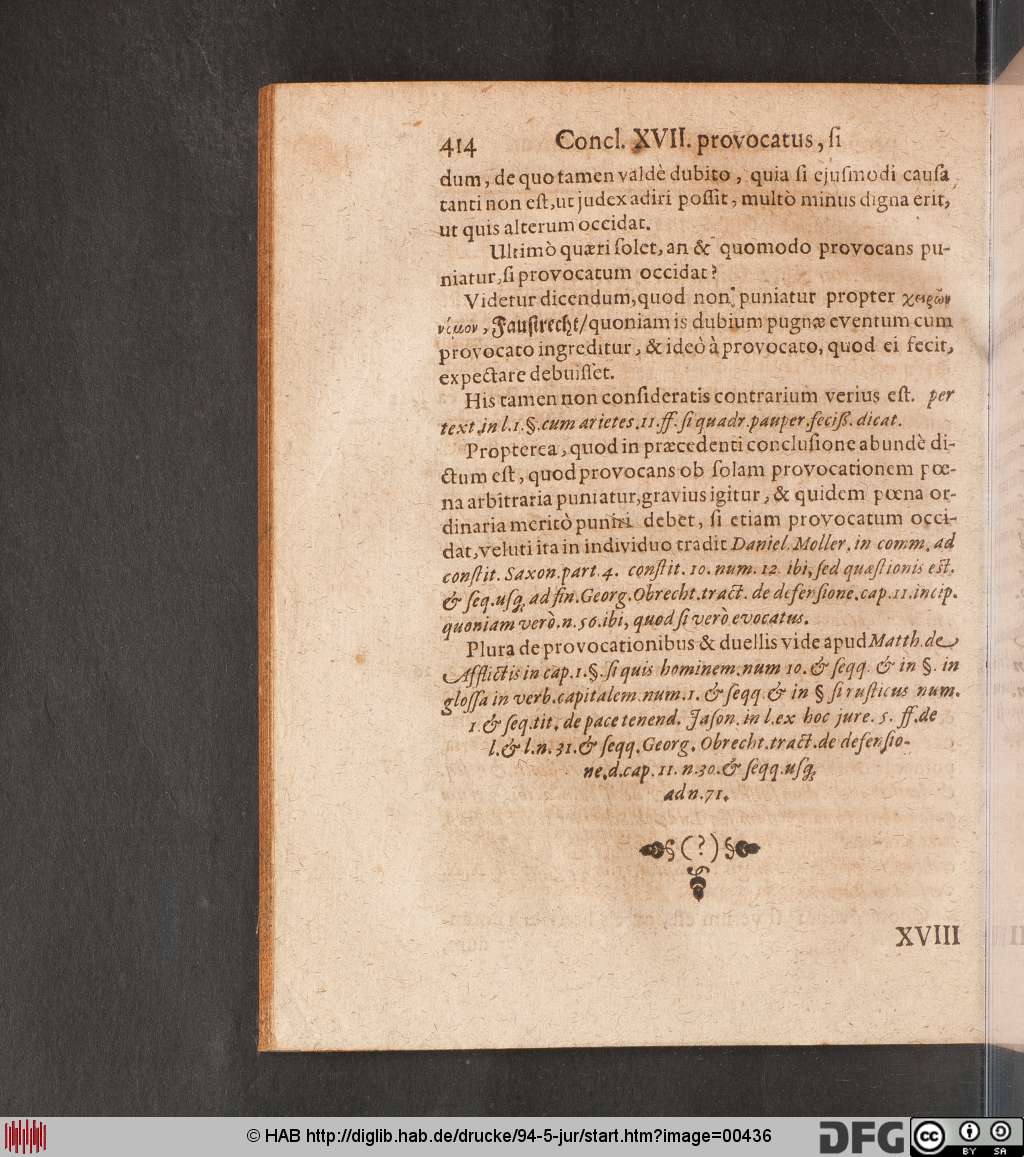 414 Concl. XVII. provocatus, ſi
dum, de quo tamen valdè dubito, quia ſi ejuſmodi cauſa
tanti non eſt, ut judex adiri poſſit, multò minus digna erit,
ut quis alterum occidat.
Ultimò quæri ſolet, an & quomodo provocans pu-
niatur, ſi provocatum occidat?
Videtur dicendum, quod non puniatur propter χειρῶν
νόμον, Fauſtrecht/ quoniam is dubium pugnæ eventum cum
provocato ingreditur, & ideò à provocato, quod ei fecit,
expectare debuiſſet.
His tamen non conſideratis contrarium verius eſt. per
text. in l. 1. §. cum arietes. 11. ff. ſi quadr. pauper. feciß. dicat.
Propterea, quod in præcedenti concluſione abundè di-
ctum eſt, quod provocans ob ſolam provocationem pœ-
na arbitraria puniatur, gravius igitur, & quidem pœna or-
dinaria meritò puniri debet, ſi etiam provocatum occi-
dat, veluti ita in individuo tradit Daniel. Moller. in comm. ad
conſtit. Saxon. part. 4. conſtit. 10. num. 12. ibi, ſed quæſtionis eſt.
& ſeq. uſq; ad fin. Georg. Obrecht. tract. de defenſione. cap. 11. incip.
quoniam verò. n. 56. ibi, quod ſi verò evocatus.
Plura de provocationibus & duellis vide apud Matth. de
Afflictis in cap. 1. §. ſi quis hominem. num 10. & ſeqq. & in §. in
gloſſa in verb. capitalem. num. 1. & ſeqq. & in § ſi ruſticus num.
1. & ſeq. tit. de pace tenend. Jaſon. in l. ex hoc jure. 5. ff. de
l. & l. n. 31. & ſeqq. Georg. Obrecht. tract. de defenſio-
ne. d. cap. 11. n. 30. & ſeqq. uſq;
ad n. 71.
§(?)§
XVIII
© HAB http://diglib.hab.de/drucke/94-5-jur/start.htm?image=00436
DFG
cc BY SA